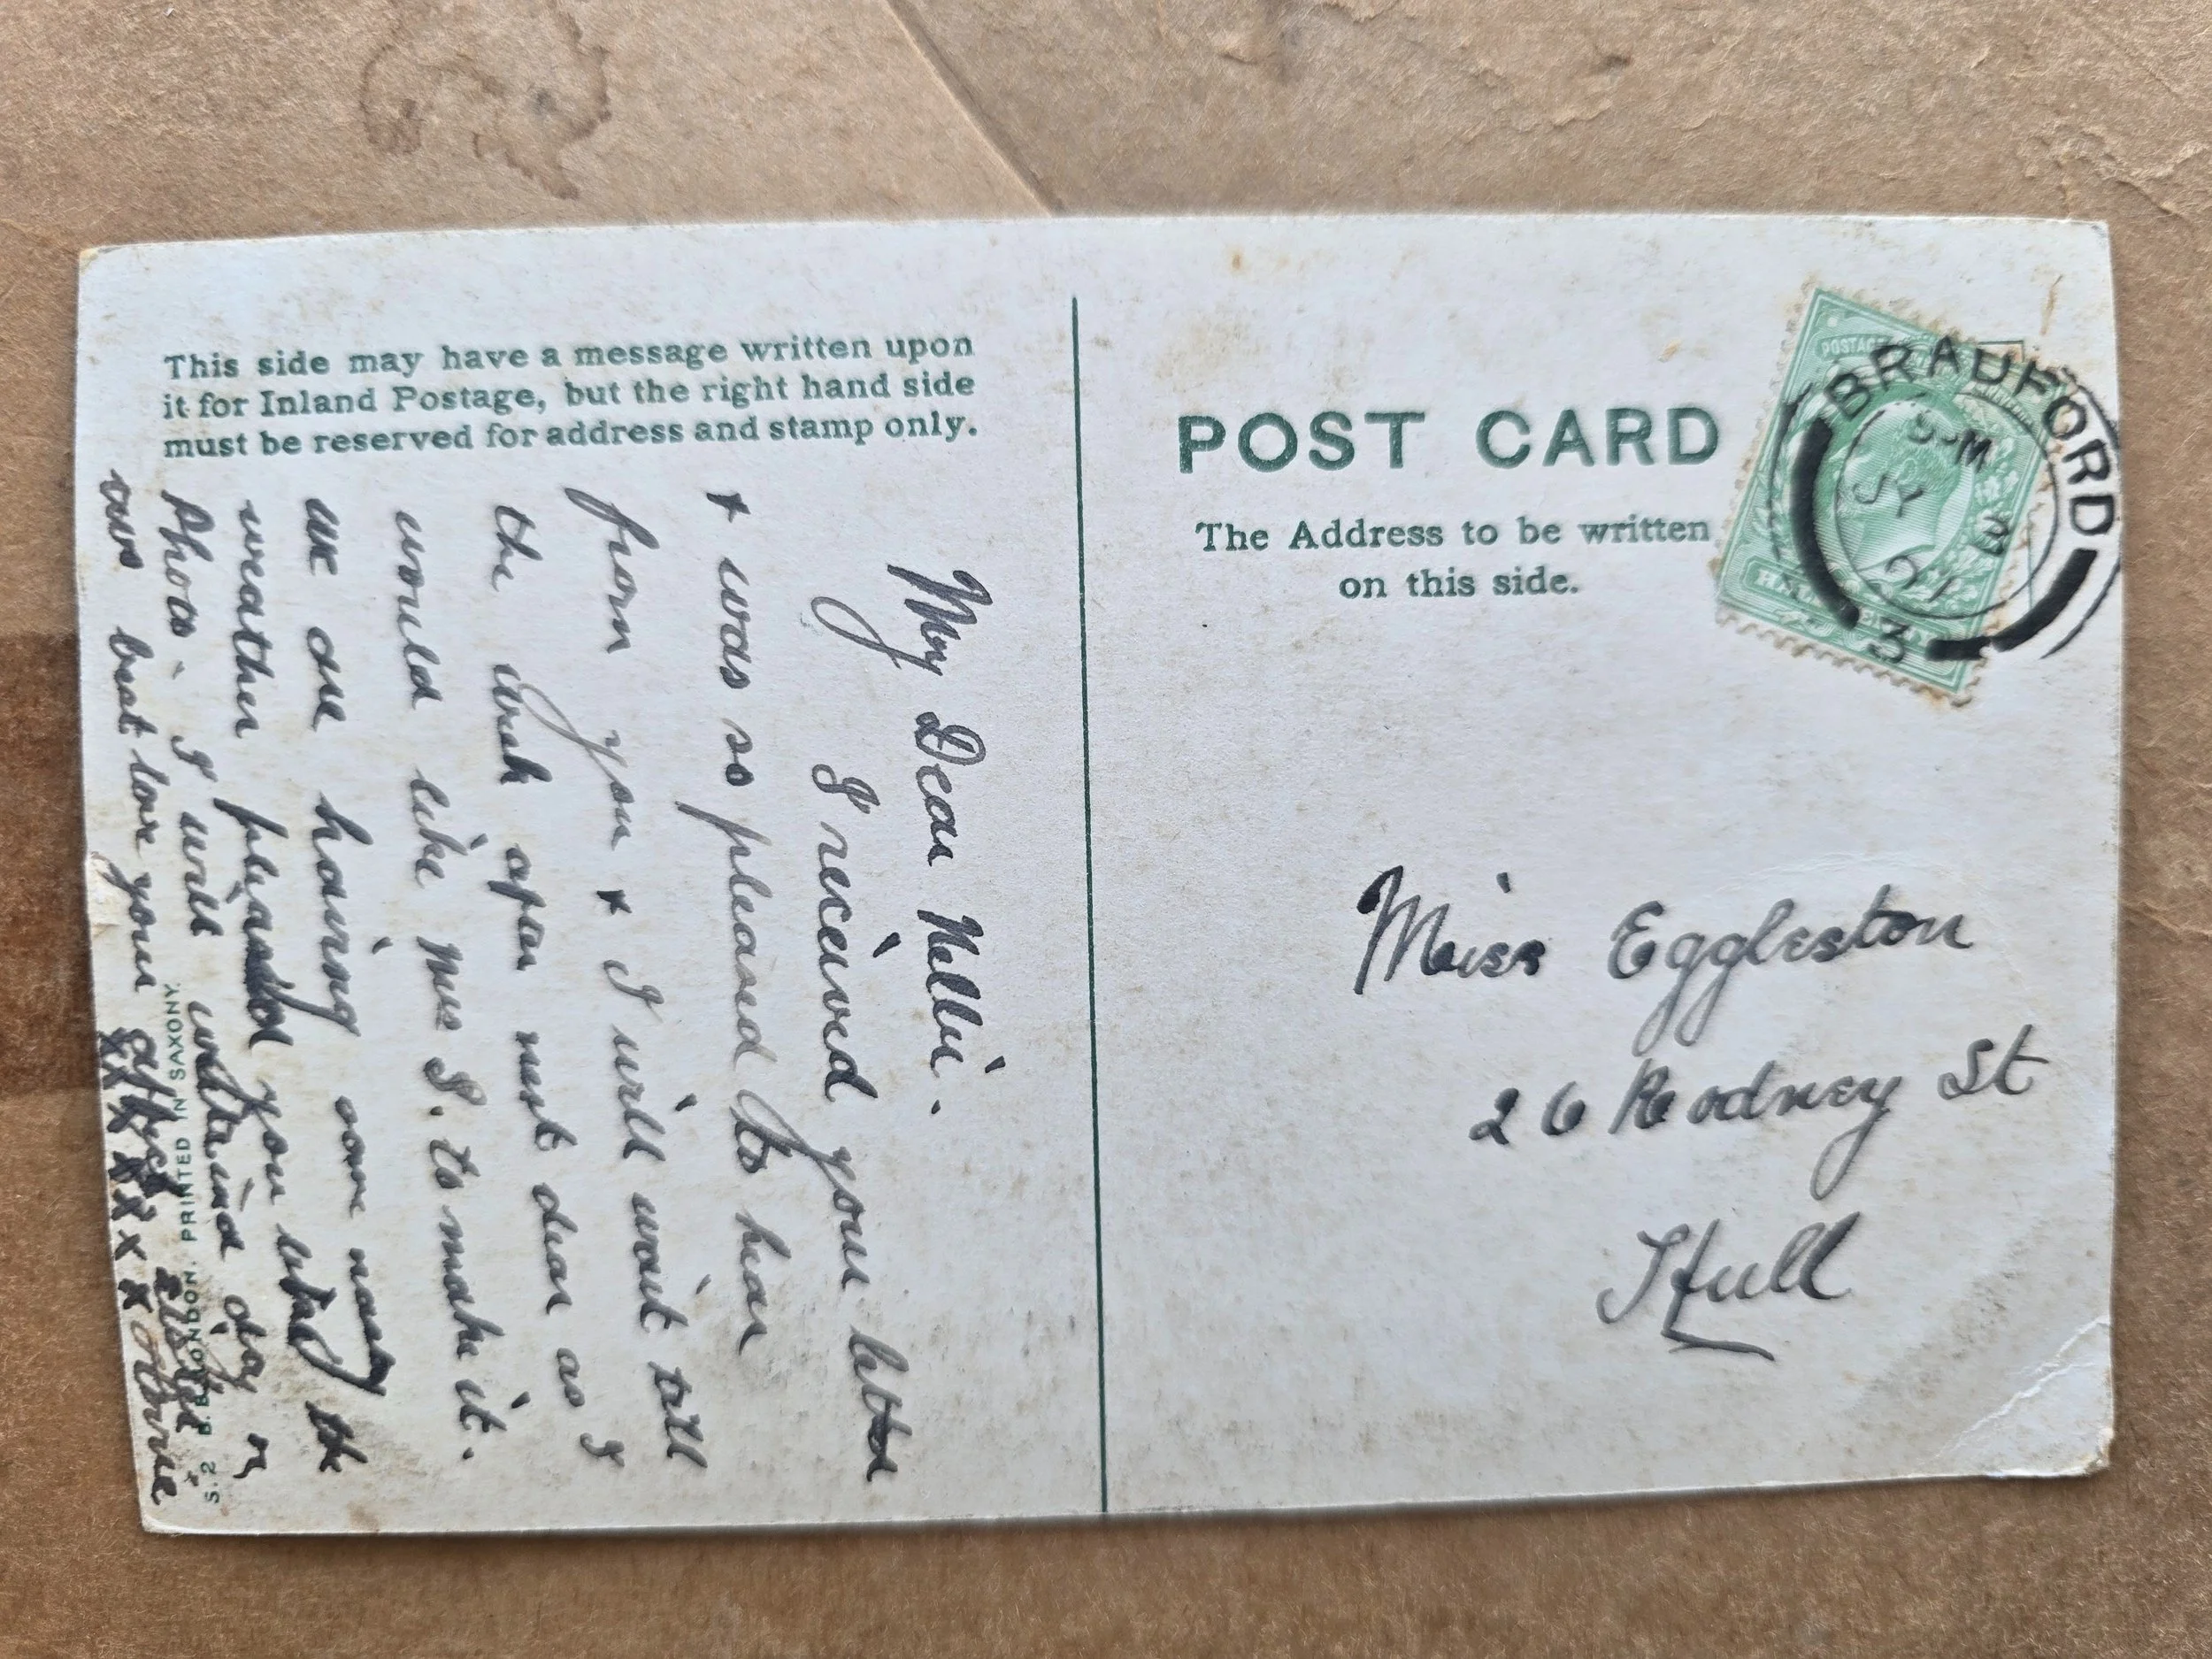 This side may have a message written upon
it for Inland Postage, but the right hand side
must be reserved for address and stamp only.
My Dear Nellie.
I received your letter
+ was so pleased to hear
from you + I will wait till
the week after next dear as I
would like you to make it.
we are having some nasty
weather pleased you liked the
Photos. I will write ind day or
two best love your
xx x x x x x x
S. 2 B.B LONDON. PRINTED IN SAXONY.
POST CARD
The Address to be written
on this side.
BRADFORD
3
Miss Eggleston
26 Rodney St
Hull